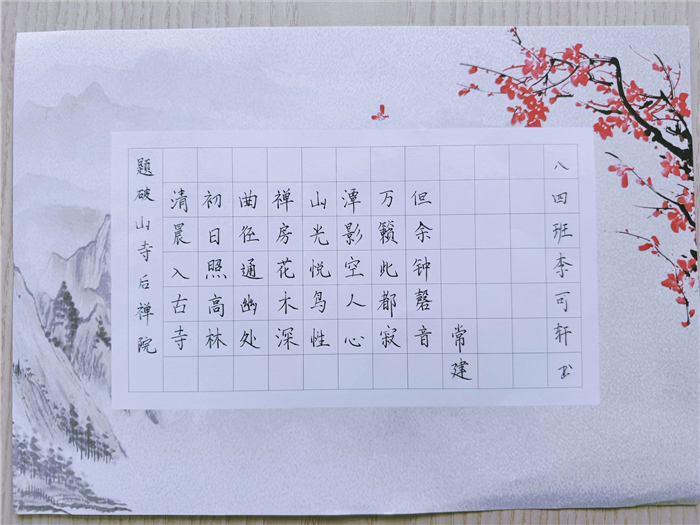 题破山寺后禅院
清晨入古寺
初日照高林
曲径通幽处
禅房花木深
山光悦鸟性
潭影空人心
万籁此都寂
但余钟磬音
常建
八四班李可轩书